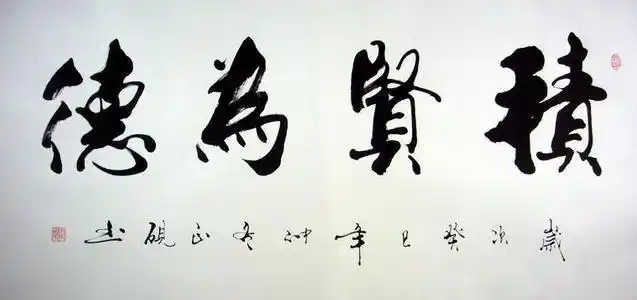 積賢為德
歲次癸巳年仲冬正硯書